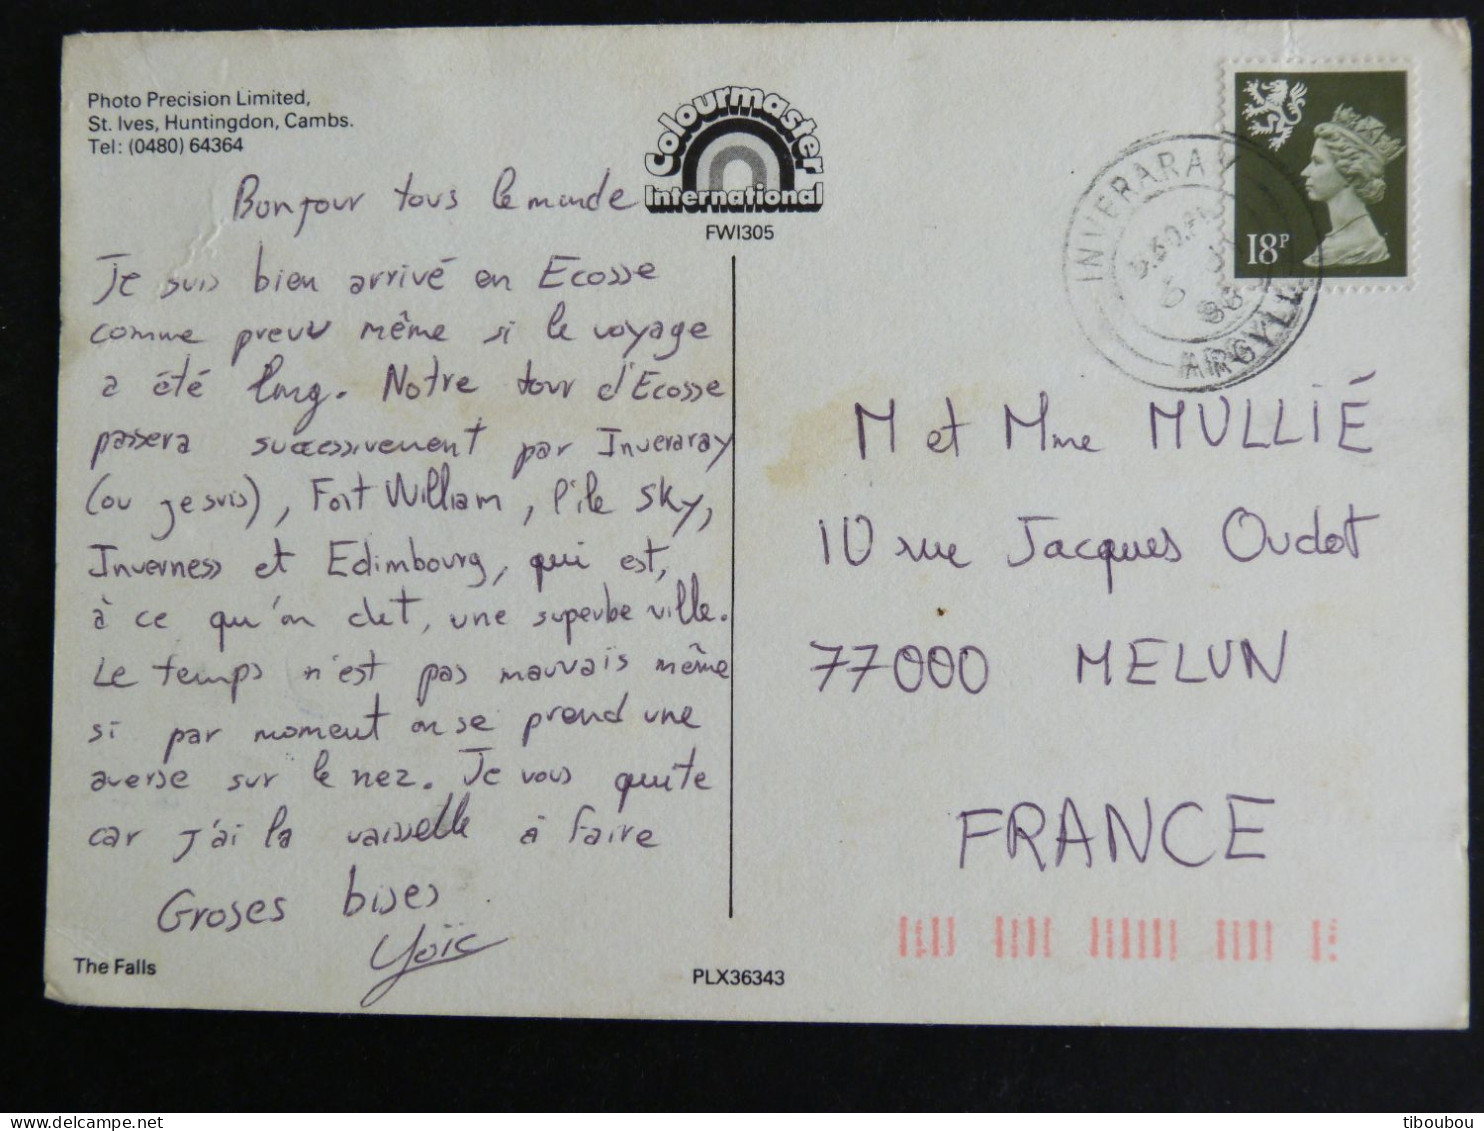 Photo Precision Limited,
St. Ives, Huntingdon, Cambs.
Tel: (0480) 64364
Colourmaster
International
FWI305
Bonjour tous le monde
Je suis bien arrivé en Ecosse
comme prevu même si le voyage
a été long. Notre tour d'Ecosse
passera successivement par Inveraray
(ou je suis), Fort William, l'île Sky,
Inverness et Edimbourg, qui est,
à ce qu'on dit, une superbe ville.
Le temps n'est pas mauvais même
si par moment on se prend une
averse sur le nez. Je vous quitte
car j'ai la vaisselle à faire
Groses bises
The Falls
PLX36343
18P
INVERARAY
ARGYLL
M et Mme MULLIÉ
10 rue Jacques Oudot
77000 MELUN
FRANCE
tiboubou